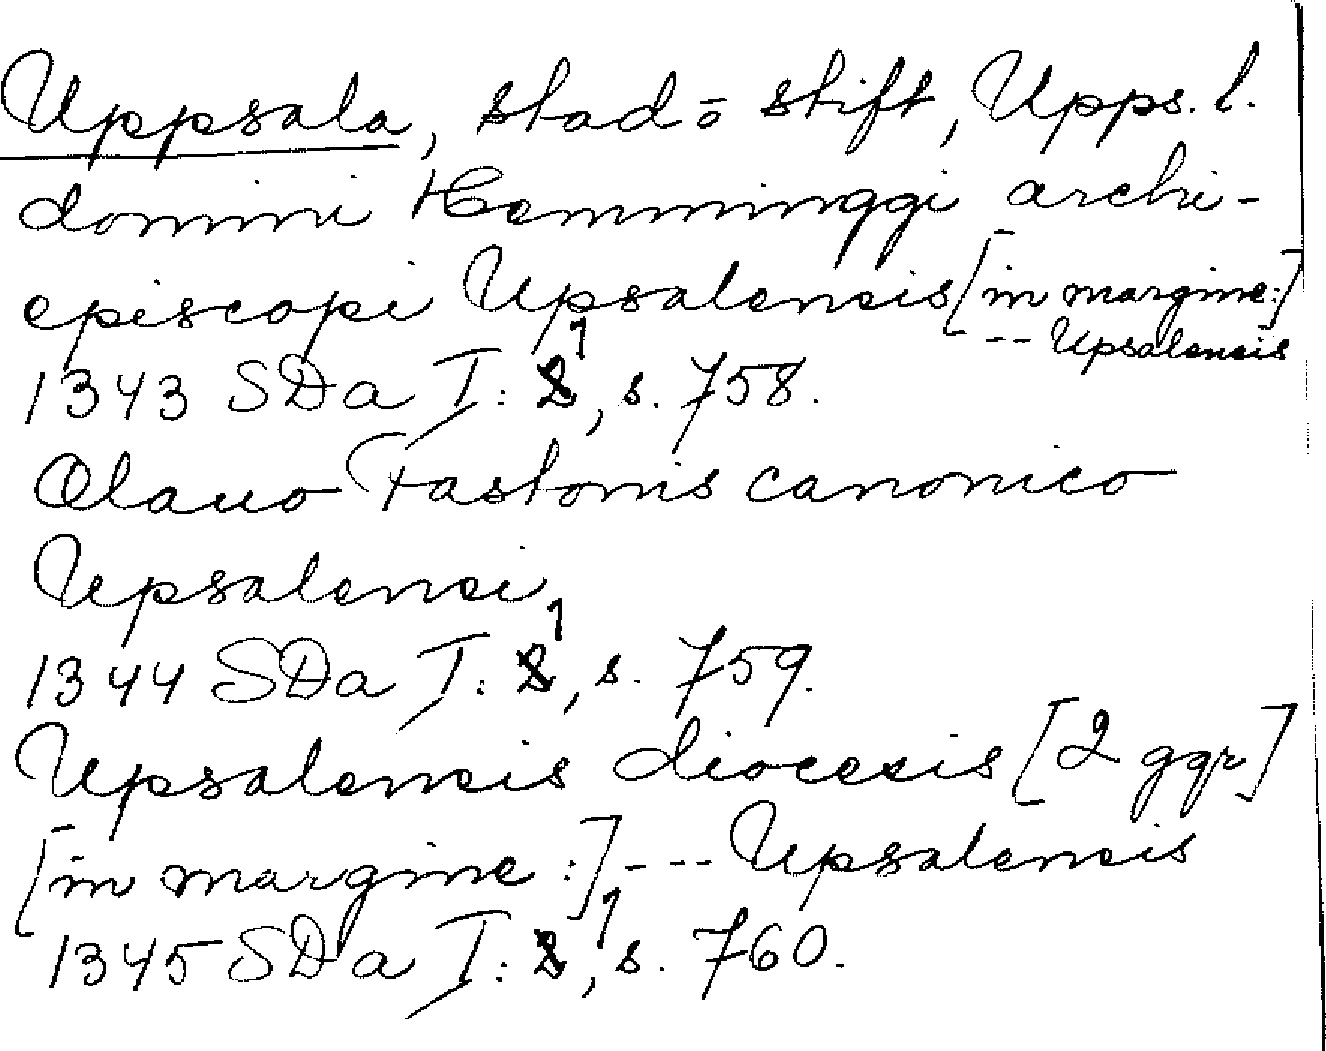 Uppsala, stad o stift, Upps. l.
domini Hemminggi archi-
episcopi Upsalensis [in margine:]
-- Upsalensis
1343 SDa I: 1, s. 758.
Olauo Fastonis canonico
Upsalensi
1344 SDa I: 1, s. 759.
Upsalensis diocesis [2 ggr]
[in margine:] --- Upsalensis
1345 SDa I: 1, s. 760.